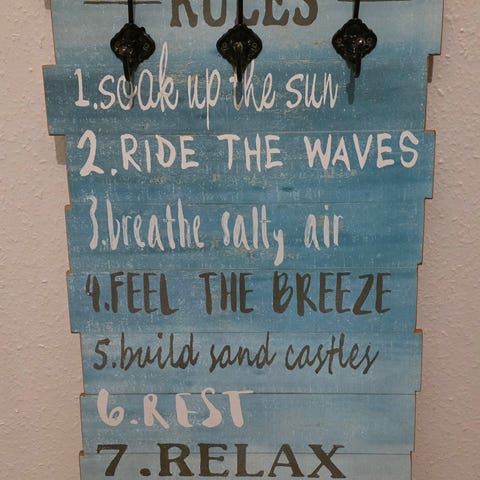 RULES
1.soak up the sun
2.RIDE THE WAVES
3.breathe salty air
4.FEEL THE BREEZE
5.build sand castles
6.REST
7.RELAX